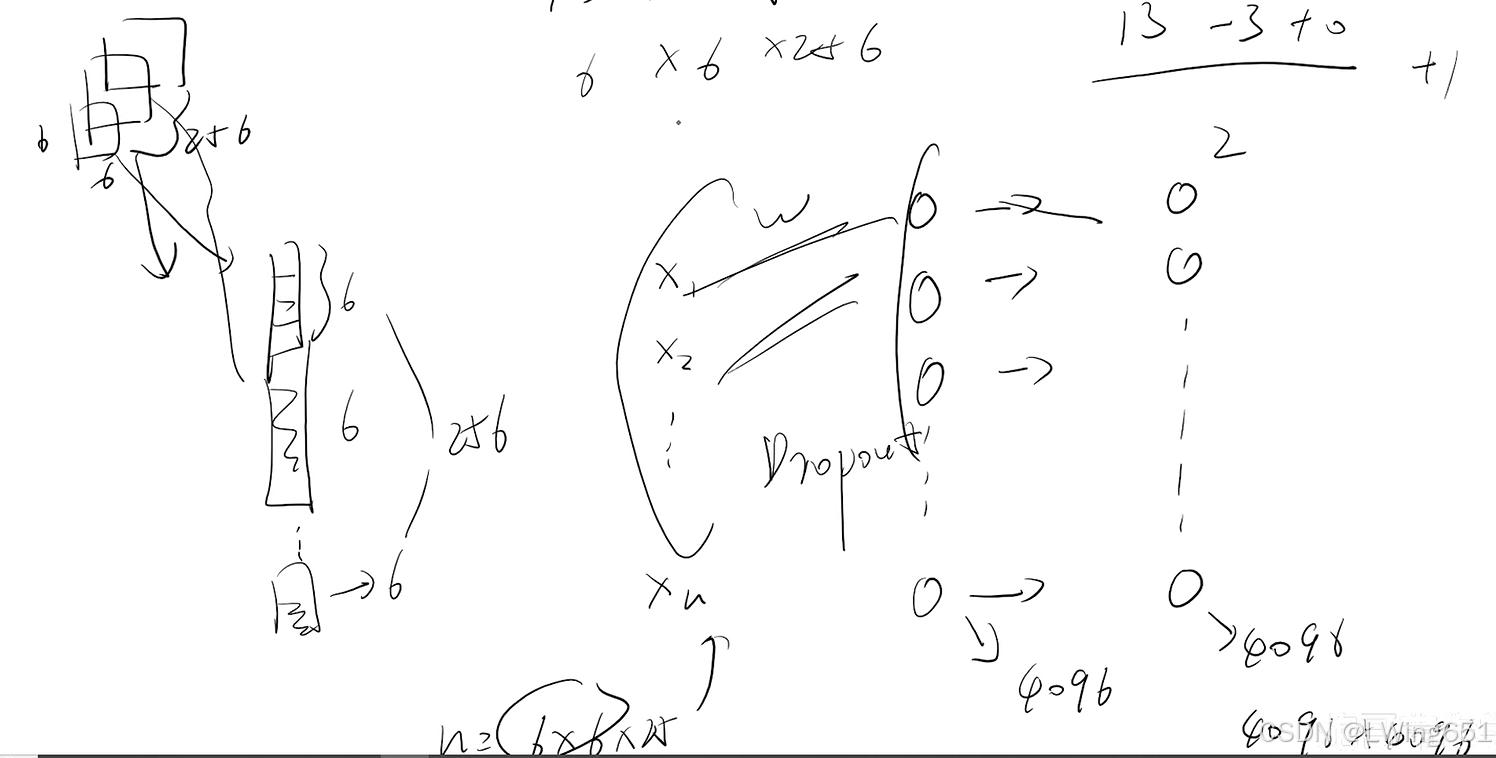 6 × 6 × 256
13 - 3 + 0
+1
2
6
6
256
6
6
256
→ 6
w
x₁
x₂
xn
Dropout
0 →
0 →
0 →
0 →
0
0
0
4096
4096
n = 6×6×25
4096 × 4096
CSDN @LWing651